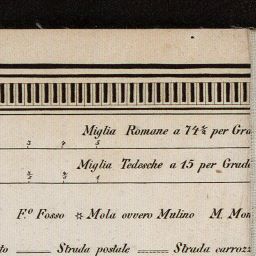 Miglia Romane a 74 ⅔ per Gra
Miglia Tedesche a 15 per Grado
F.º Fosso ☼ Mola ovvero Mulino M. Mon
to Strada postale Strada carrozz